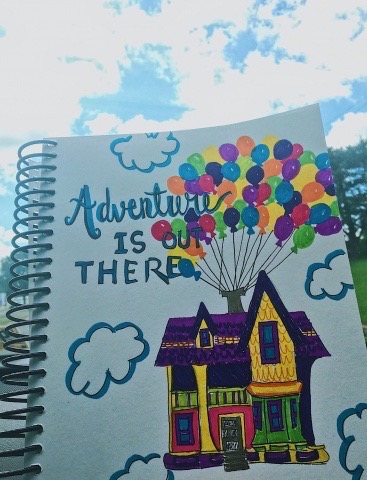 Adventure
IS OUT
THERE